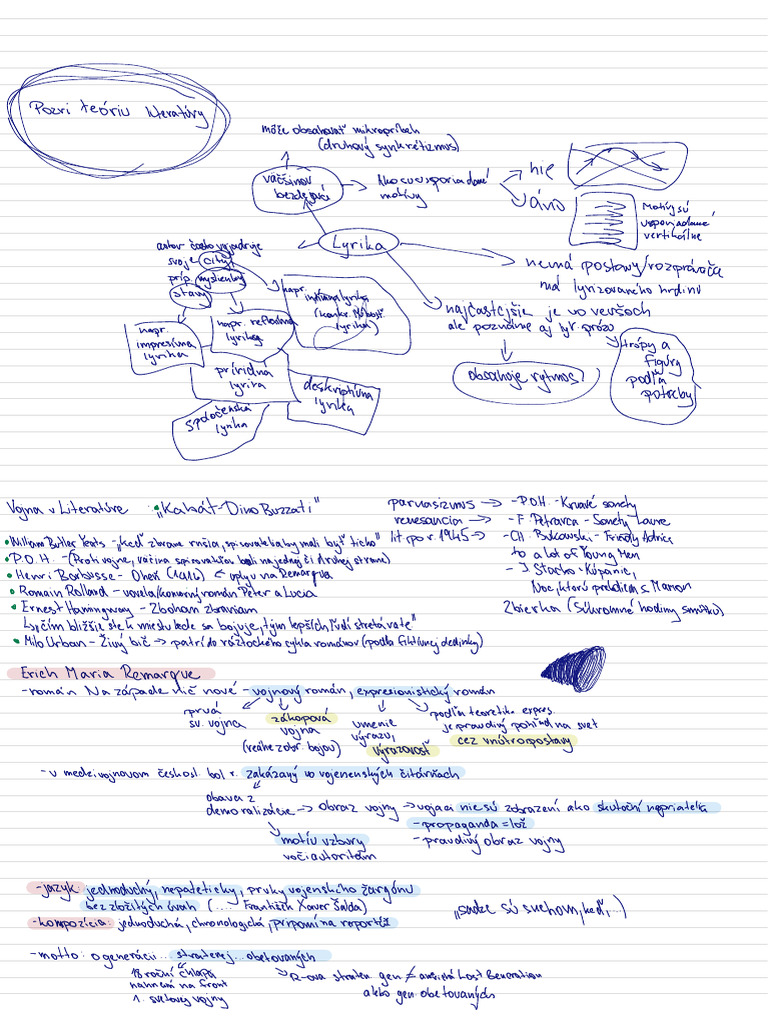 Pozri teóriu literatúry
môže obsahovať mikropríbeh
(druhový synkretizmus)
väčšinou
bezdejová
Ako sú usporiadané
motívy
nie
áno
Motívy sú
usporiadané
vertikálne
Lyrika
autor často vyjadruje
svoje city
príp. myšlienky
stavy
nemá postavy/rozprávača
má lyrizovaného hrdinu
napr.
intímna lyrika
lyrika)
najčastejšie je vo veršoch
ale poznáme aj lyr. prózu
napr.
impresívna
lyrika
napr. reflexívna
lyrika
prírodná
lyrika
deskriptívna
lyrika
spoločenská
lyrika
obsahuje rytmus
trópy a
figúry
podľa
potreby
Vojna v literatúre „Kabát-Dino Buzzati"
parnasizmus → - P.O.H. - Krvavé sonety
renesancia → - F. Petrarca - Sonety Laure
lit. po r. 1945 → - CH. Bukowski - Friendly Advice
to a lot of Young Men
- J. Stacho - Kúpanie,
Noc, ktorú prebdiem s
Zbierka (Súkromné hodiny smútku)
• William Butler Yeats - „Keď zbrane rinčia, spisovatelia by mali byť ticho"
• P.O.H. - (Proti vojne, väčšina spisovateľov boli na jednej či druhej strane)
• Henri Barbusse - Oheň ← vplyv na Remarqua
• Romain Rolland - novela/komorný román Peter a Lucia
• Ernest Hamingway - Zbohom zbraniam
„čím bližšie ste k miestu kde sa bojuje, tým lepších ľudí stretávate"
• Milo Urban - Živý bič → patrí do ráztockého cyklu románov (podľa fiktívnej dedinky)
Erich Maria Remarque
- román Na západe nič nové - vojnový román, expresionistický román
prvá
sv. vojna
zákopová
vojna
(reálne zobr. bojov)
umenie
výrazu,
výrazovosť
podľa teoretika expres.
je pravdivý pohľad na svet
cez vnútro postavy
- v medzivojnovom českosl. bol r. zakázaný vo vojenenských čitárňach
obava z
demoralizácie → obraz vojny → vojaci nie sú zobrazení ako skutoční nepriatelia
- propaganda = lož
- pravdivý obraz vojny
motív vzbury
voči autoritám
- jazyk: jednoduchý, nepatetický, prvky vojenského žargónu
bez zložitých úvah (.... František Xaver Šalda)
- kompozícia: jednoduchá, chronologická, pripomína reportáž
„sudze sú suchom, keď,...)
- motto: o generácii... stratenej... obetovaných
18 roční chlapci
nahnaní na front
1. svetovej vojny
R-ova straten gen ≠ americká Lost Generation
alebo gen. obetovaných